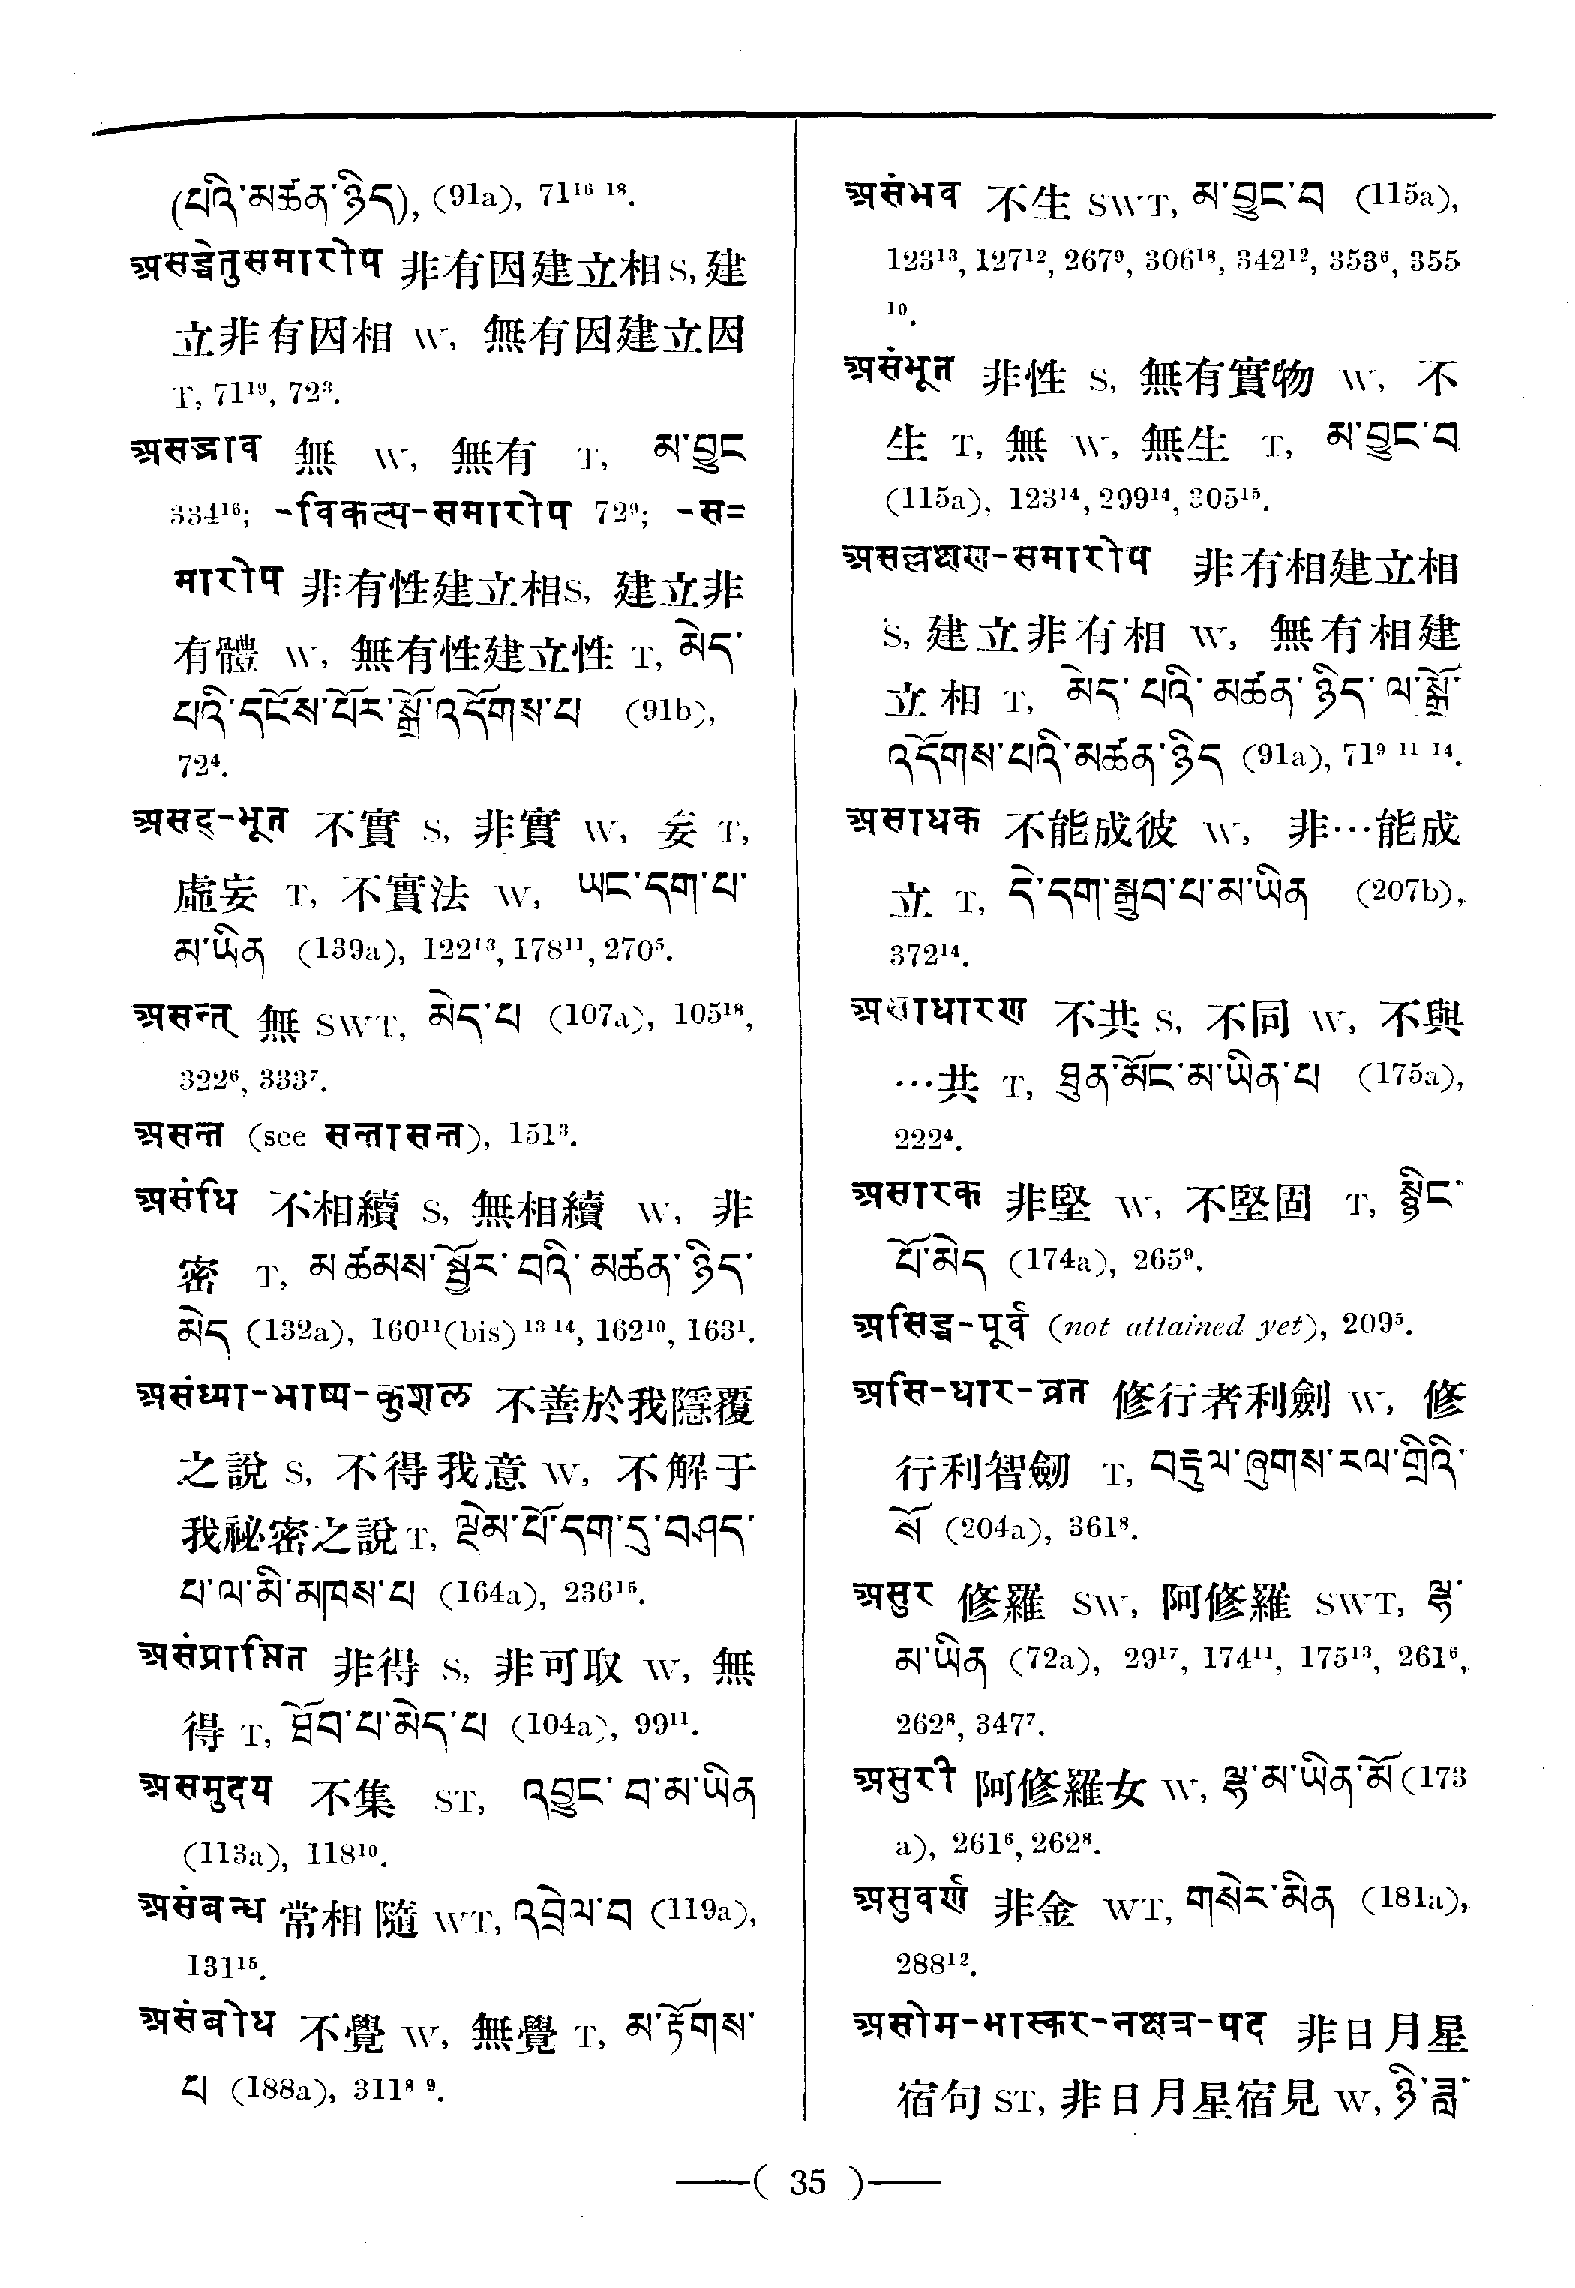 (པའི་མཚན་ཉིད), (91a), 71¹⁶ ¹⁸.
असद्धेतुसमारोप 非有因建立相 S, 建
立非有因相 W, 無有因建立因
T, 71¹⁹, 72³.
असद्भाव 無 W, 無有 T, མ་བྱུང
334¹⁶; -विकल्प-समारोप 72⁹; -स=
मारोप 非有性建立相S, 建立非
有體 W, 無有性建立性 T, མེད་
པའི་དངོས་པོར་སྒྲོ་འདོགས་པ (91b),
72⁴.
असद्-भूत 不實 S, 非實 W, 妄 T,
虛妄 T, 不實法 W, ཡང་དག་པ་
མ་ཡིན (139a), 122¹³, 178¹¹, 270⁵.
असन्त् 無 SWT, མེད་པ (107a), 105¹⁸,
322⁶, 333⁷.
असन्त (see सन्तासन्त), 151³.
असंधि 不相續 S, 無相續 W, 非
密 T, མ་ཚམས་སྦྱོར་བའི་མཚན་ཉིད་
མེད (132a), 160¹¹(bis) ¹³ ¹⁴, 162¹⁰, 163¹.
असंध्या-भाष्य-कुशल 不善於我隱覆
之說 S, 不得我意 W, 不解于
我祕密之說 T, ལྡེམ་པོ་དག་ཏུ་བཤད་
པ་ལ་མི་མཁས་པ (164a), 236¹⁵.
असंप्राप्तित 非得 S, 非可取 W, 無
得 T, ཐོབ་པ་མེད་པ (104a), 99¹¹.
असमुदय 不集 ST, འབྱུང་བ་མ་ཡིན
(113a), 118¹⁰.
असंबन्ध 常相隨 WT, འབྲེལ་བ (119a),
131¹⁵.
असंबोध 不覺 W, 無覺 T, མ་རྟོགས་
པ (188a), 311⁸ ⁹.
असंभव 不生 SWT, མ་བྱུང་བ (115a),
123¹³, 127¹², 267⁹, 306¹⁸, 342¹², 353⁶, 355
¹⁰.
असंभूत 非性 S, 無有實物 W, 不
生 T, 無 W, 無生 T, མ་བྱུང་བ
(115a), 123¹⁴, 299¹⁴, 305¹⁵.
असल्लक्षण-समारोप 非有相建立相
S, 建立非有相 W, 無有相建
立相 T, མེད་པའི་མཚན་ཉིད་ལ་སྒྲོ་
འདོགས་པའི་མཚན་ཉིད (91a), 71⁹ ¹¹ ¹⁴.
असाधक 不能成彼 W, 非…能成
立 T, དེ་དག་སྒྲུབ་པ་མ་ཡིན (207b),
372¹⁴.
असाधारण 不共 S, 不同 W, 不與
…共 T, ཐུན་མོང་མ་ཡིན་པ (175a),
222⁴.
असारक 非堅 W, 不堅固 T, སྙིང་
པོ་མེད (174a), 265⁹.
असिद्ध-पूर्व (not attained yet), 209⁵.
असि-धार-व्रत 修行者利劍 W, 修
行利智劒 T, བརྟུལ་ཞུགས་རལ་གྲིའི་
སོ (204a), 361⁸.
असुर 修羅 SW, 阿修羅 SWT, ལྷ་
མ་ཡིན (72a), 29¹⁷, 174¹¹, 175¹³, 261⁶,
262⁸, 347⁷.
असुरी 阿修羅女 W, ལྷ་མ་ཡིན་མོ (173
a), 261⁶, 262⁸.
असुवर्ण 非金 WT, གསེར་མིན (181a),
288¹².
असोम-भास्कर-नक्षत्र-पद 非日月星
宿句 ST, 非日月星宿見 W, ཉི་ཟླ་
( 35 )